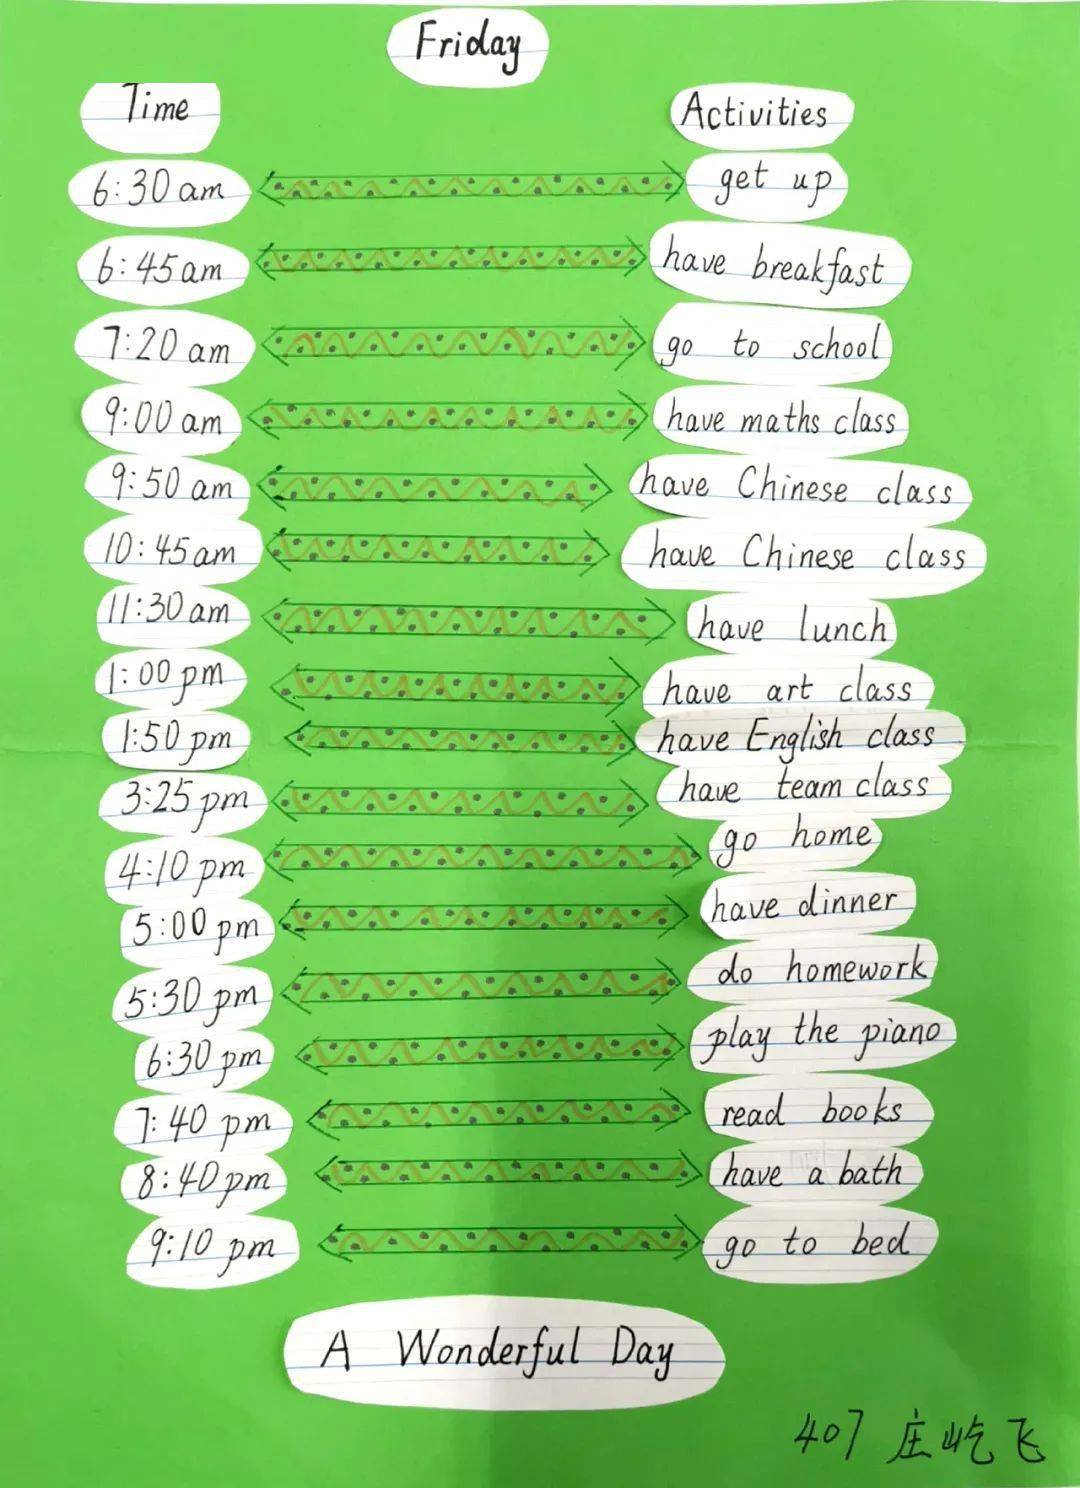 Friday
Time Activities
6:30 am get up
6:45 am have breakfast
7:20 am go to school
9:00 am have maths class
9:50 am have Chinese class
10:45 am have Chinese class
11:30 am have lunch
1:00 pm have art class
1:50 pm have English class
3:25 pm have team class
4:10 pm go home
5:00 pm have dinner
5:30 pm do homework
6:30 pm play the piano
7:40 pm read books
8:40 pm have a bath
9:10 pm go to bed
A Wonderful Day
407 庄屹飞